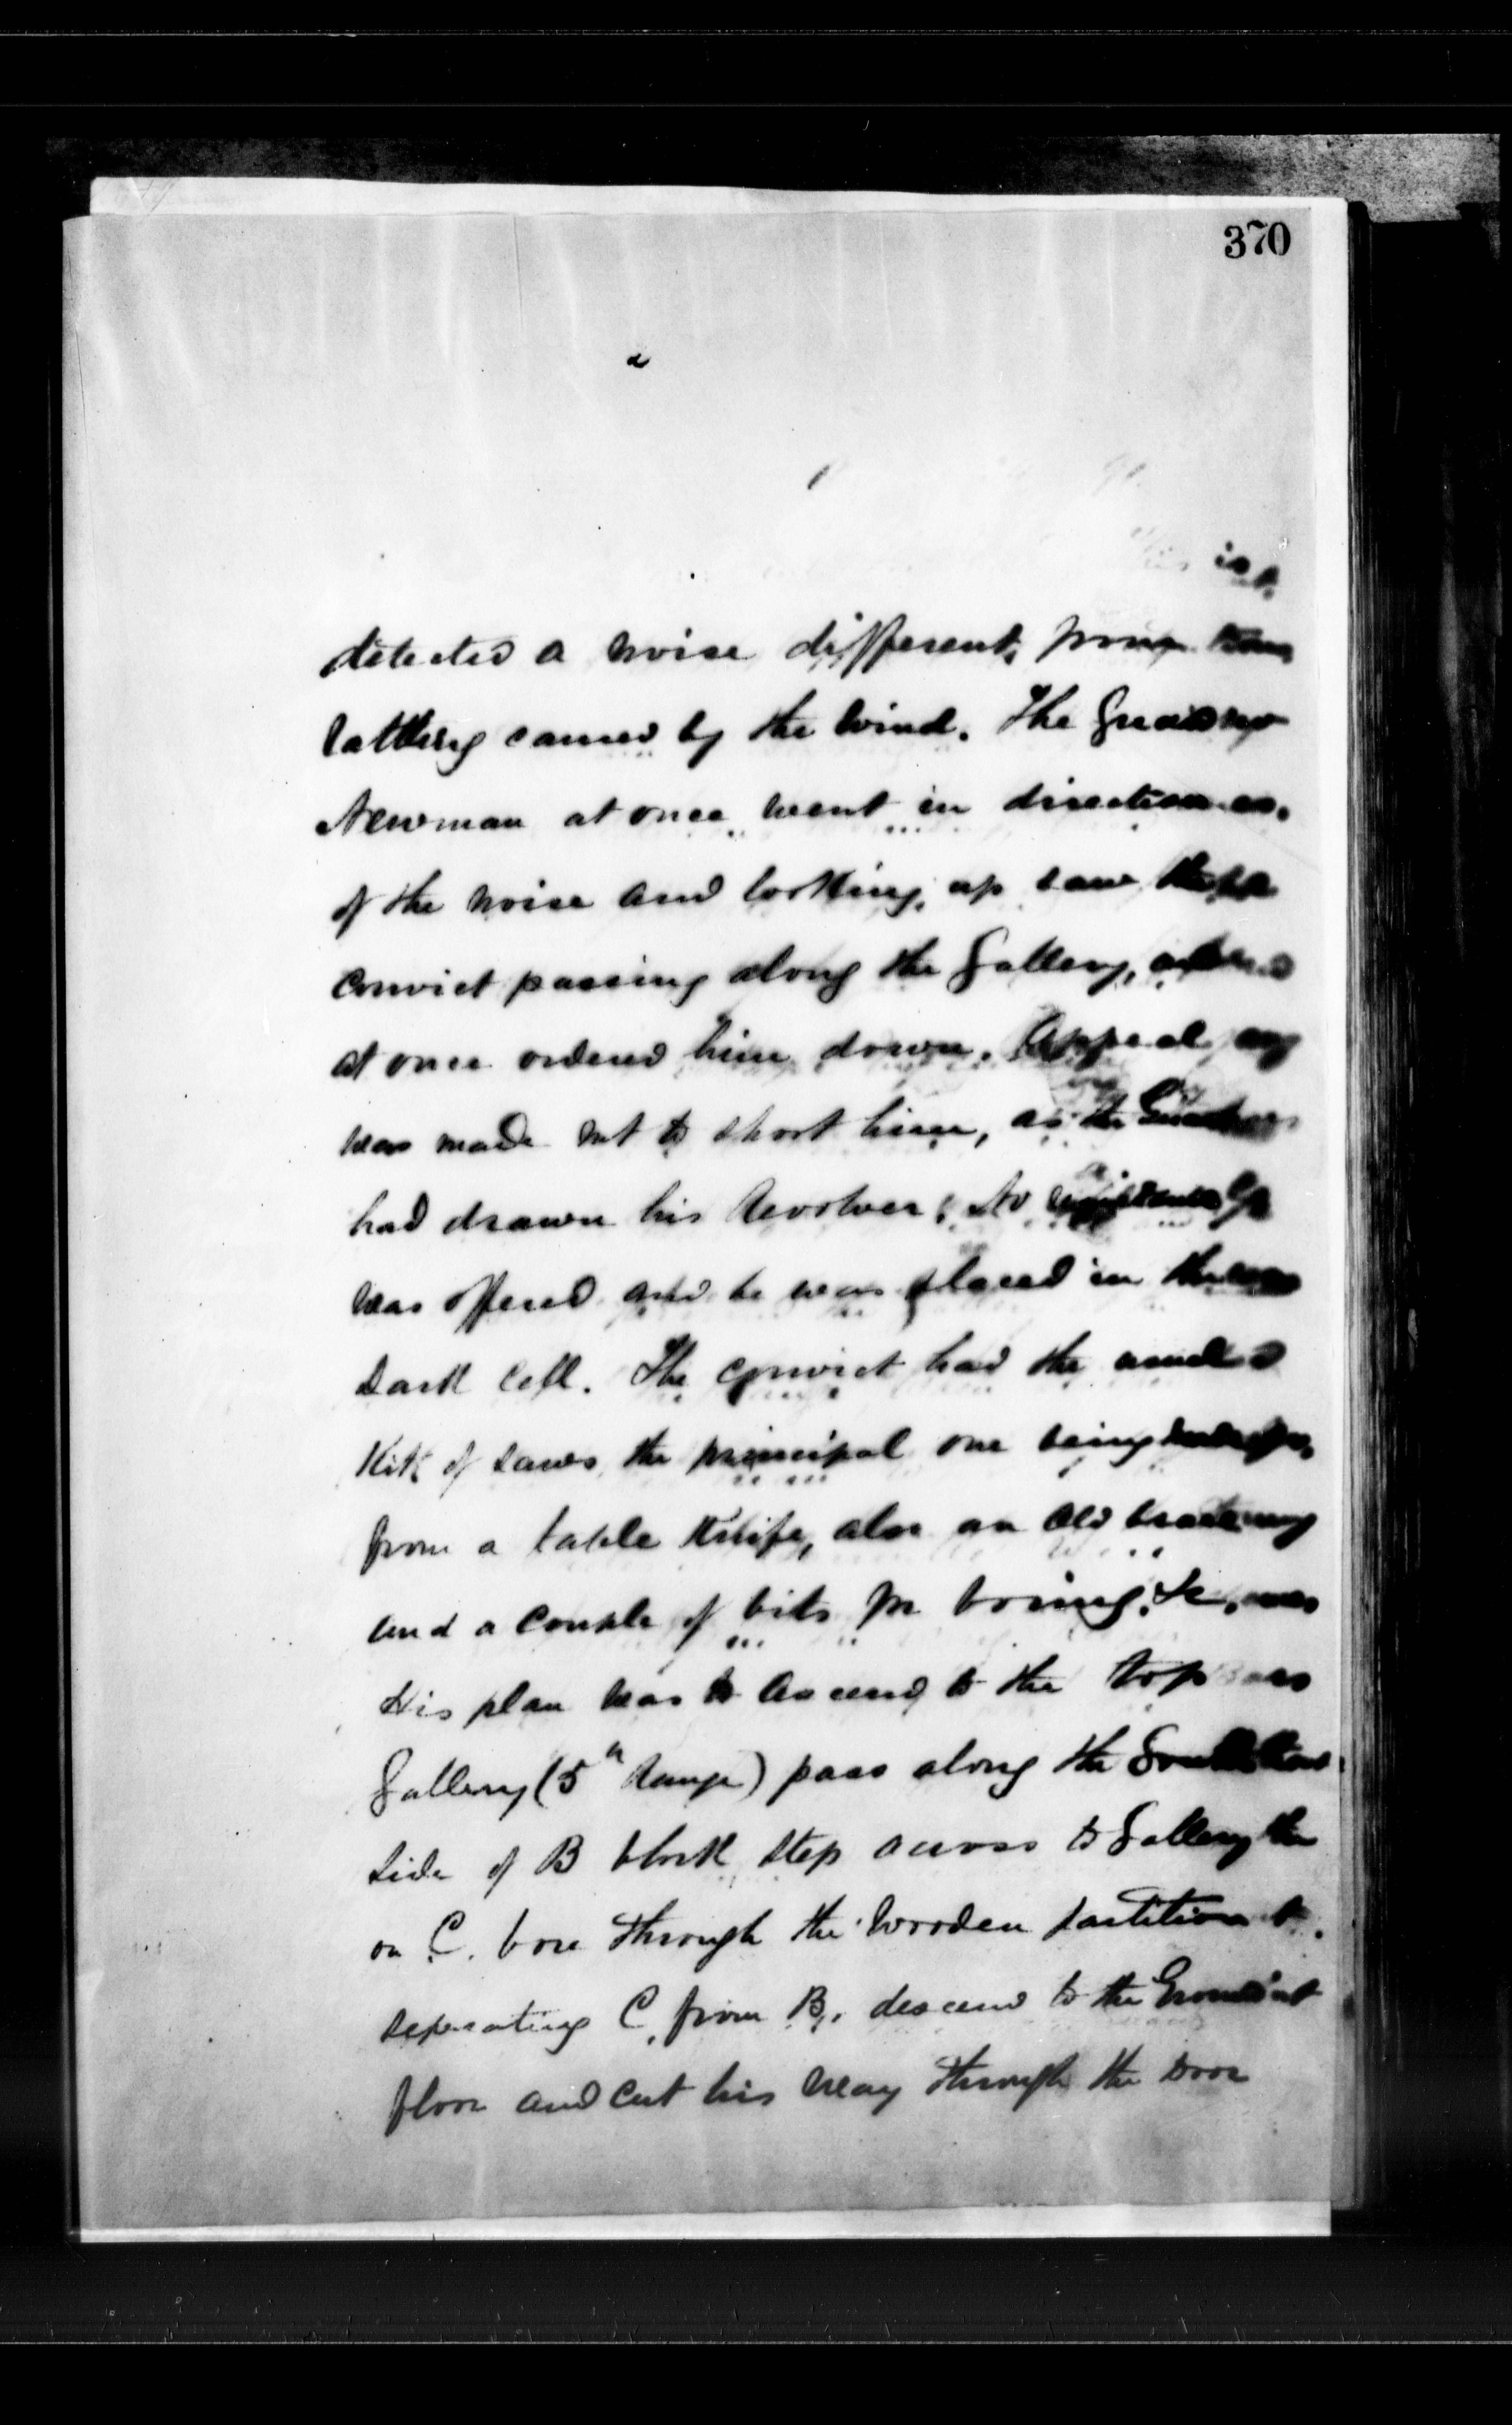 370
detected a noise different from
rattling caused by the wind. The Guard
Newman at once went in direction
of the noise and looking up saw the
convict passing along the Gallery, and
at once ordered him down. Appeal
was made not to shoot him, as the Guard
had drawn his Revolver; No resistance
was offered and he was placed in the
Dark Cell. The convict had the usual
Kit of saws the principal one being made
from a table Knife, also an old brace
and a couple of bits for boring, &c,
His plan was to ascend to the top
Gallery (5th Range) pass along the South
side of B block step across to Gallery
on C. bore through the wooden partition
seperating C from B, descend to the Ground
floor and cut his way through the Door